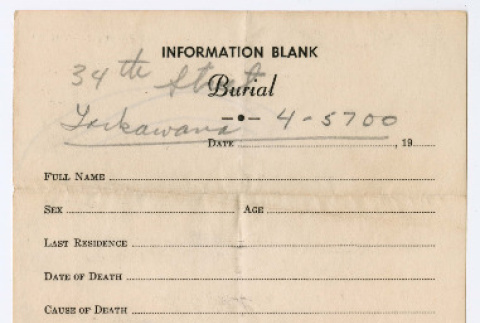 INFORMATION BLANK
34th Street
Burial
4-5700
DATE , 19
FULL NAME
SEX AGE
LAST RESIDENCE
DATE OF DEATH
CAUSE OF DEATH